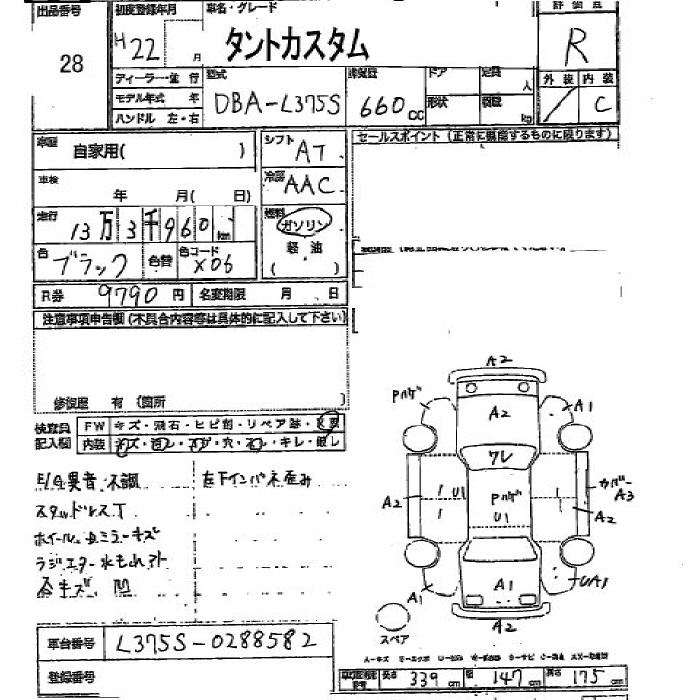 出品番号
28
初度登録年月
H22 月
車名・グレード
タントカスタム
評価点
R
ディーラー・並行
モデル年式 年
ハンドル 左・右
型式
DBA-L375S
排気量
660cc
ドア
形状
定員
人
積載
kg
外装
内装
/
C
車歴
自家用( )
車検
年 月( 日)
走行
13万3千960km
色
ブラック
色替
色コード
X06
シフト
AT
冷房
AAC
燃料
ガソリン
軽油
( )
セールスポイント(正常に機能するものに限ります)
R券
9790円
名変期限 月 日
注意事項申告欄(不具合内容等は具体的に記入して下さい)
修復歴 有(箇所
検査員
記入欄
FW
キズ・飛石・ヒビ割・リペア跡・
内装
・穴・ ・キレ・
異音、不調
スタッドレス
ホイール、 ミラーキズ
ラジエター水もれアト
キズ、凹
左下インパネ歪み
A2
Pハゲ
A1
A2
ワレ
A2
U1
Pハゲ
U1
カバーA3
A2
A1
A1
UA1
A2
スペア
車台番号
L375S-0288582
登録番号
長さ
339cm
幅
147cm
高さ
175cm